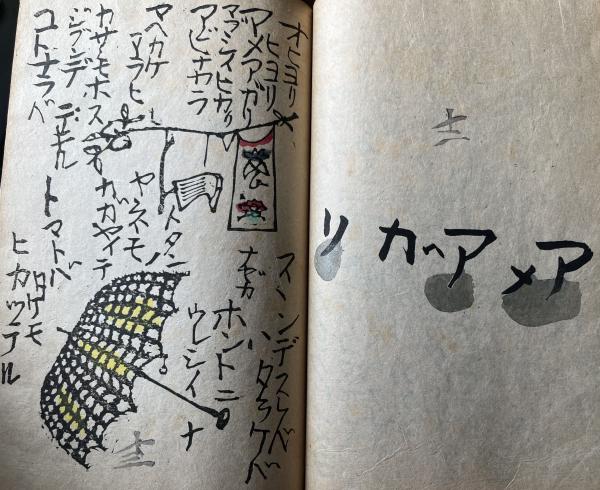 アメアガリ
十二
オヒヨリ
ヒヨリ
アメアガリ
マブシイヒカリ
アビナガラ
マヘカケ
アラヒ
カサモホス
ジブンデ
デキル
コトナラバ
トタン
ヤネモ
カガヤイテ
トマトバタケモ
ヒカツテル
スンデスレバ
ハタラケバ
ナゼカ
ホントニ
ウレシイナ
十二